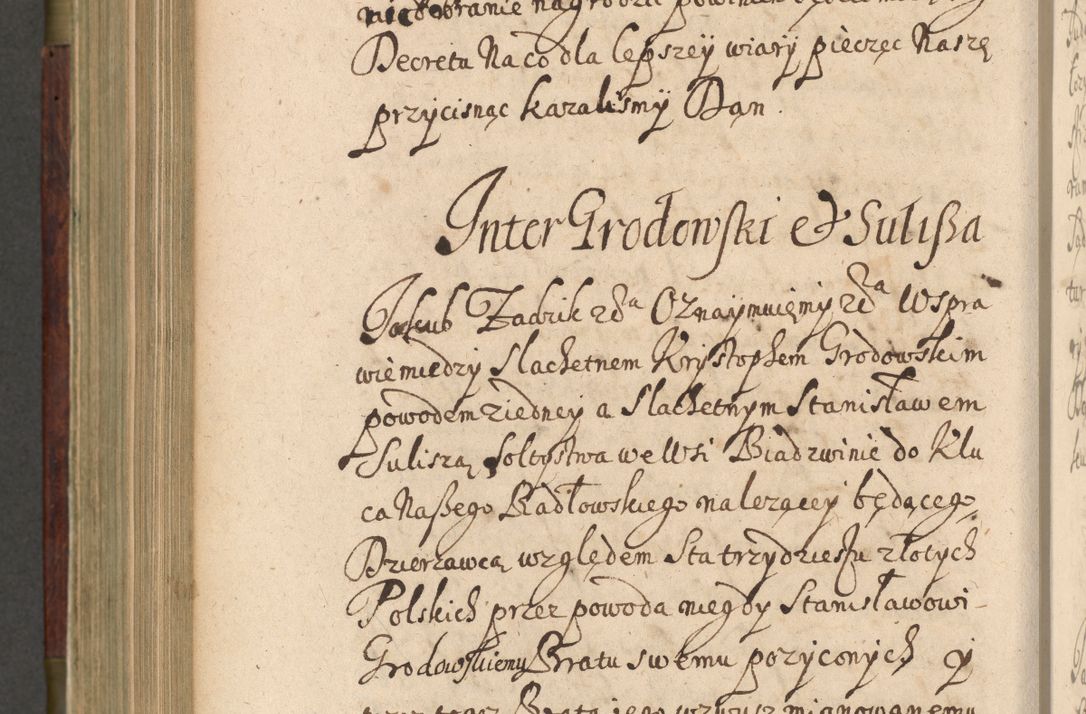 Decretu Na co dla lepszey wiary pieczęc Naszę
przycisnąc kazalismy Dąn.
Inter Grodowski et Sulißa
Jakub Zadzik etca Oznaymuięmy etca W spra
wie miedzy Slachetnem Krysstophem Grodowskim
powodem z iedney a Slachetnym Stanisławem
Suliszą Soltystwa we Wsi Biadzwinie do Klu
ca Naßego Radłowskiego nalezącey będącego
Dzierzawcą względem Sta trzydziestu złotych
Polskich przez powoda niegdy Stanisławowi-
Grodowskiemu Bratu swemu pozyconych y